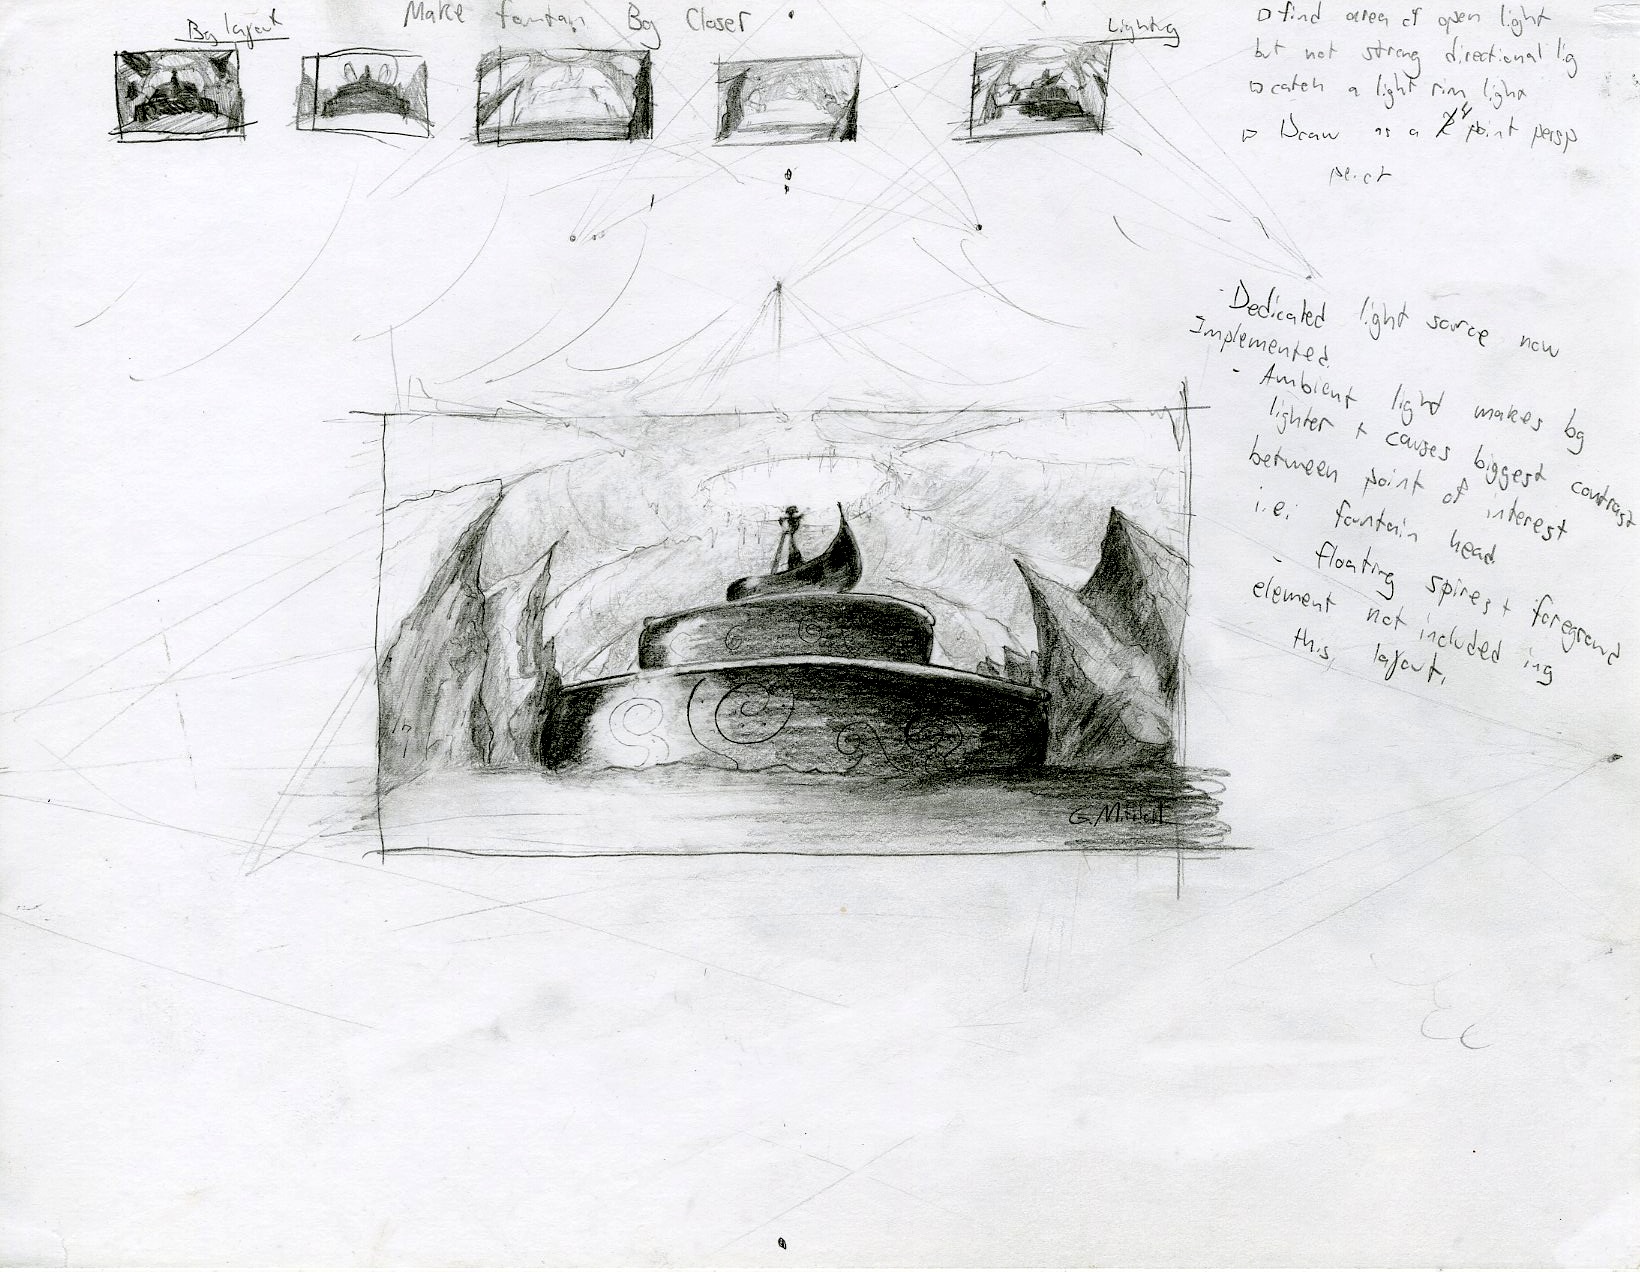 Make fountain Bg Closer
Bg layout
Lighting
find area of open light
but not strong directional lig
catch a light rim light
Draw as a 4 point persp
Dedicated light source now
Implemented.
- Ambient light makes bg
lighter + causes biggest contrast
between point of interest
i.e. fountain head
- floating spires + foreground
element not included ing
this layout.